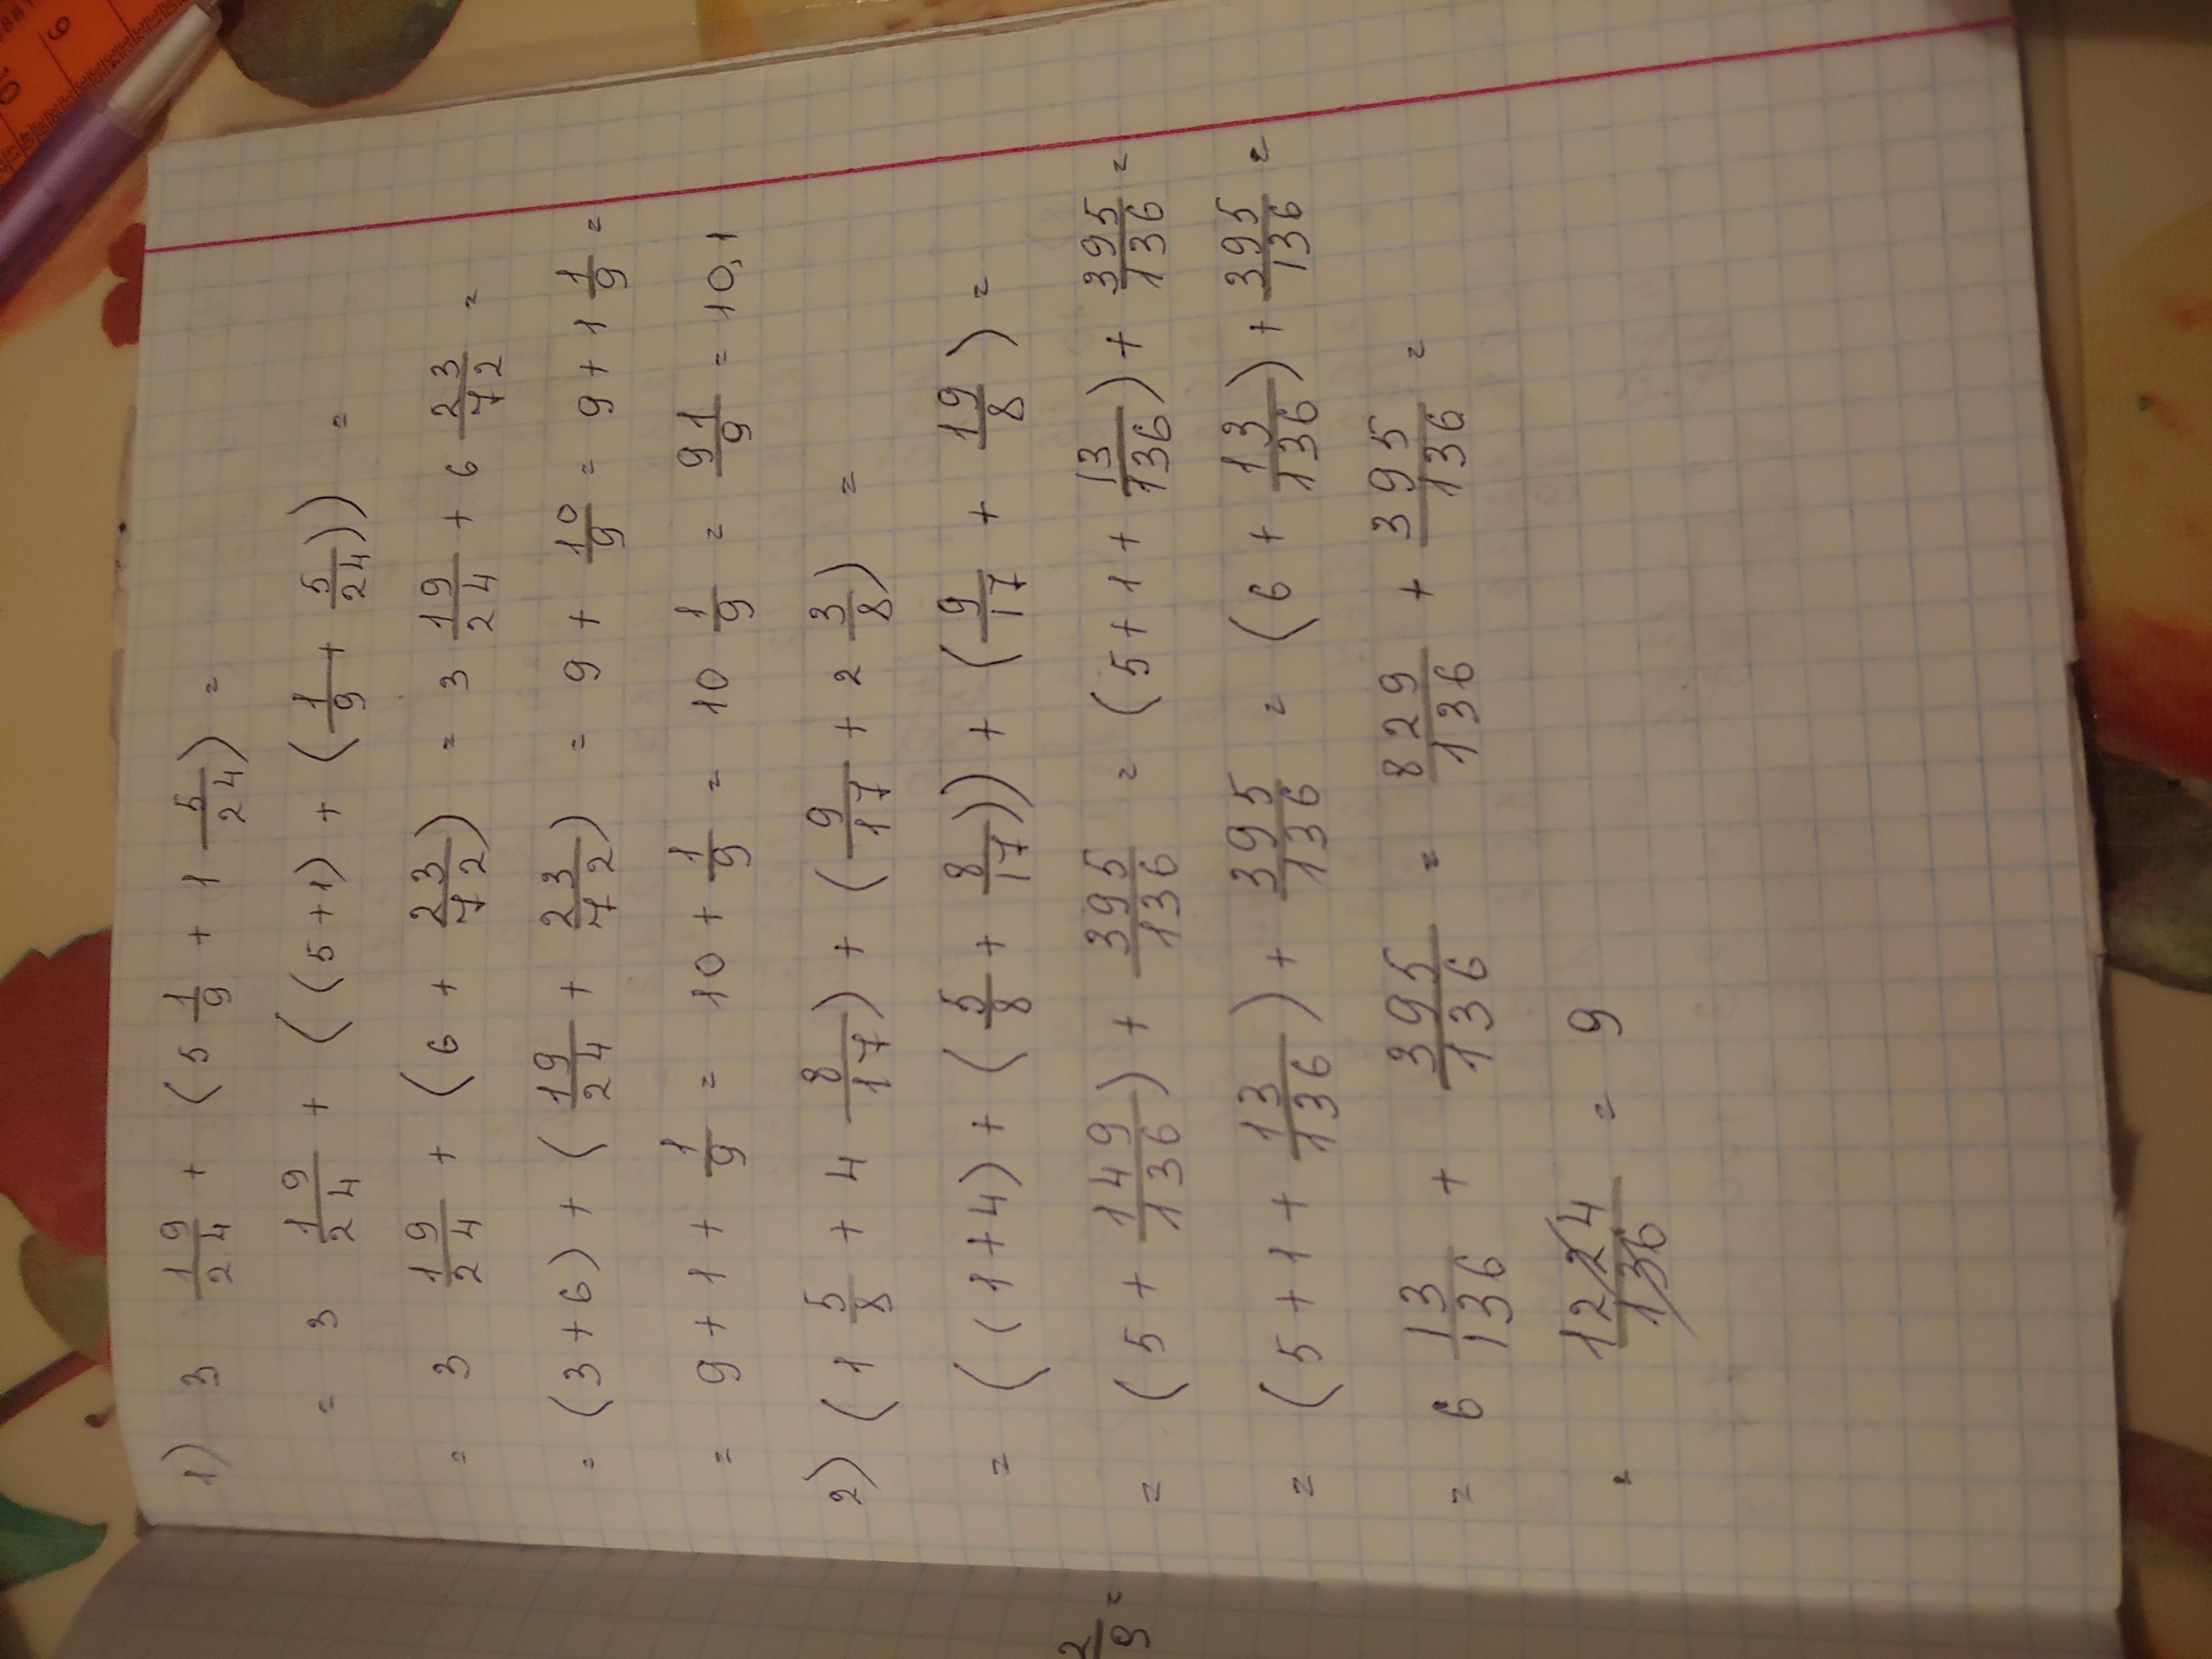 1) 3 19/24 + (5 1/9 + 1 5/24) =
= 3 19/24 + ((5+1) + (1/9 + 5/24)) =
= 3 19/24 + (6 + 23/72) = 3 19/24 + 6 23/72 =
= (3+6) + (19/24 + 23/72) = 9 + 10/9 = 9 + 1 1/9 =
= 9 + 1 + 1/9 = 10 + 1/9 = 10 1/9 = 91/9 = 10,1
2) (1 5/8 + 4 8/17) + (9/17 + 2 3/8) =
= ((1+4) + (5/8 + 8/17)) + (9/17 + 19/8) =
= (5 + 149/136) + 395/136 = (5 + 1 + 13/136) + 395/136 =
= (5 + 1 + 13/136) + 395/136 = (6 + 13/136) + 395/136 =
= 6 13/136 + 395/136 = 829/136 + 395/136 =
= 1224/136 = 9
2/9 =
6
10